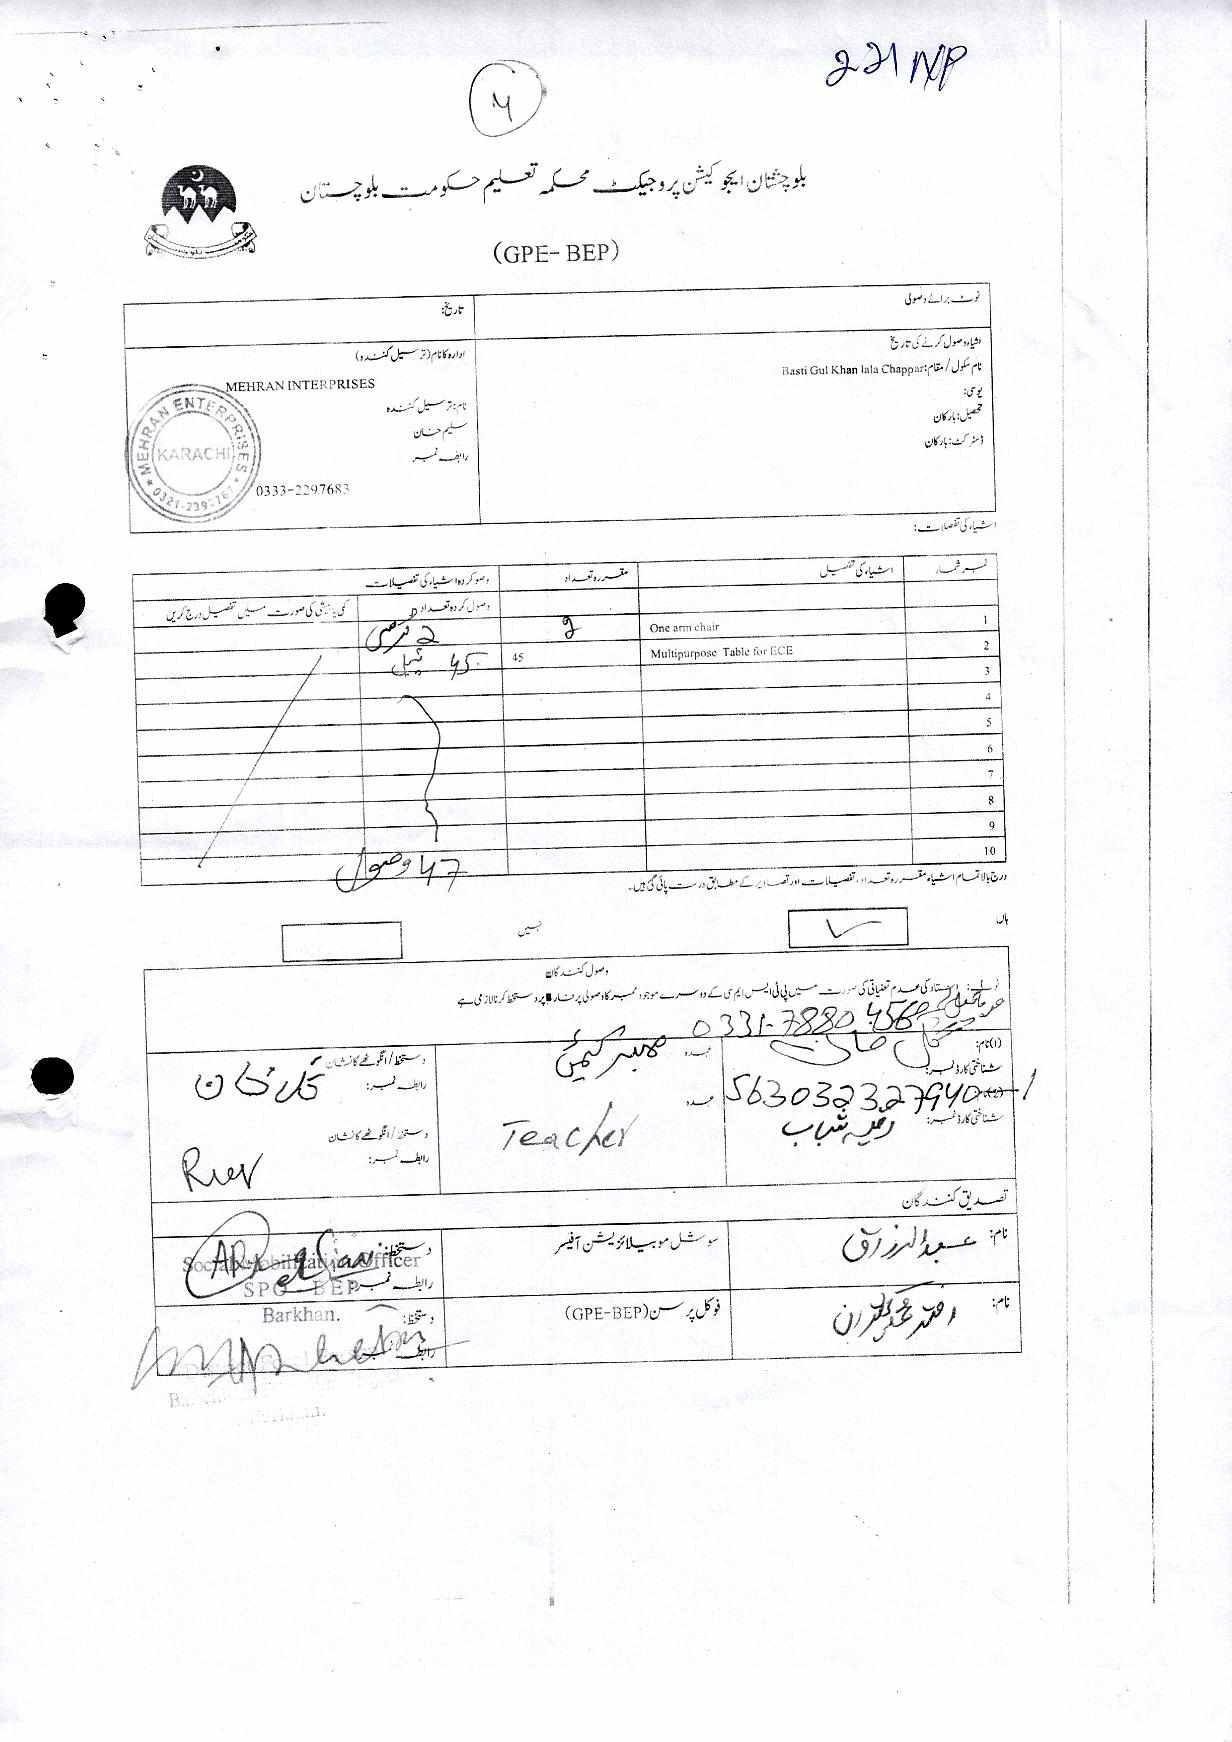 221 NP
بلوچستان ایجوکیشن پروجیکٹ محکمہ تعلیم حکومت بلوچستان
(GPE- BEP)
نوٹ برائے وصولی
تاریخ:
اشیاء وصول کرنے کی تاریخ
نام سکول / مقام: Basti Gul Khan lala Chappar
یوسی:
تحصیل: بارکان
ڈسٹرکٹ: بارکان
ادارہ کا نام (ترسیل کنندہ)
MEHRAN INTERPRISES
نام: ترسیل کنندہ
سلیم خان
رابطہ نمبر
0333-2297683
MEHRAN ENTERPRISES
KARACHI
اشیاء کی تفصلات:
نمبر شمار اشیاء کی تفصیل مقررہ تعداد وصول کردہ اشیاء کی تفصیلات
وصول کردہ تعداد کمی یا بیشی کی صورت میں تفصیل درج کریں
1 One arm chair 2 2 کرسی
2 Multipurpose Table for ECE 45 45 ٹیبل
3
4
5
6
7
8
9
10
47 وصول
درج بالا تمام اشیاء مقررہ تعداد، تفصیلات اور تصاویر کے مطابق درست پائی گئی ہیں۔
ہاں
نہیں
وصول کنندگان
نوٹ: استاد کی عدم تعیناتی کی صورت میں پی ٹی ایس ایم سی کے دوسرے موجود ممبر کا وصولی پر فارم پر دستخط کرنا لازمی ہے
0331-7880456
(۱) نام: گل خان
عہدہ ممبر کمیٹی
دستخط / انگوٹھے کا نشان
گل خان
رابطہ نمبر:
شناختی کارڈ نمبر:
5630323279401
عہدہ
Teacher
شناختی کارڈ نمبر:
دستخط / انگوٹھے کا نشان
رابطہ نمبر:
تصدیق کنندگان
نام: عبدالرزاق
سوشل موبیلائزیشن آفیسر
دستخط:
رابطہ نمبر
Social Mobilization Officer
SPO - BEP
Barkhan.
نام:
فوکل پرسن (GPE-BEP)
دستخط: